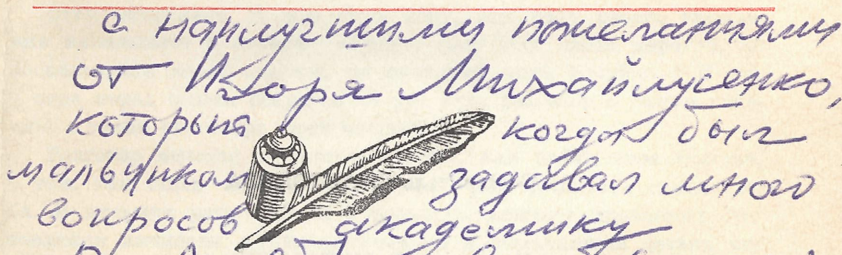 с наилучшими пожеланиями
от Игоря Михайлусенко,
который когда был
мальчиком задавал много
вопросов академику